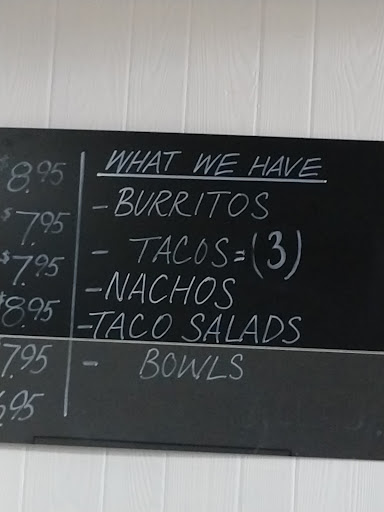 $8.95
$7.95
$7.95
$8.95
7.95
6.95
WHAT WE HAVE
- BURRITOS
- TACOS = (3)
- NACHOS
- TACO SALADS
- BOWLS